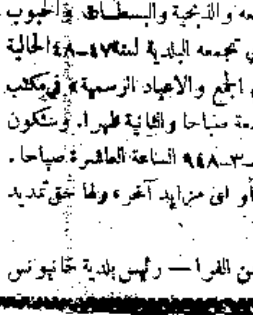 معه والذبحية والبسطات والحبوب
تجمعه البلدية لسنة ٤٧-٤٨ الحالية
الجمع والاعياد الرسمية في مكتب
صباحا والثانية ظهرا. وستكون
٣-٩٤٨ الساعة العاشرة صباحا.
أو اى مزايد آخر ولها حق تمديد
الفرا — رئيس بلدية خانيونس